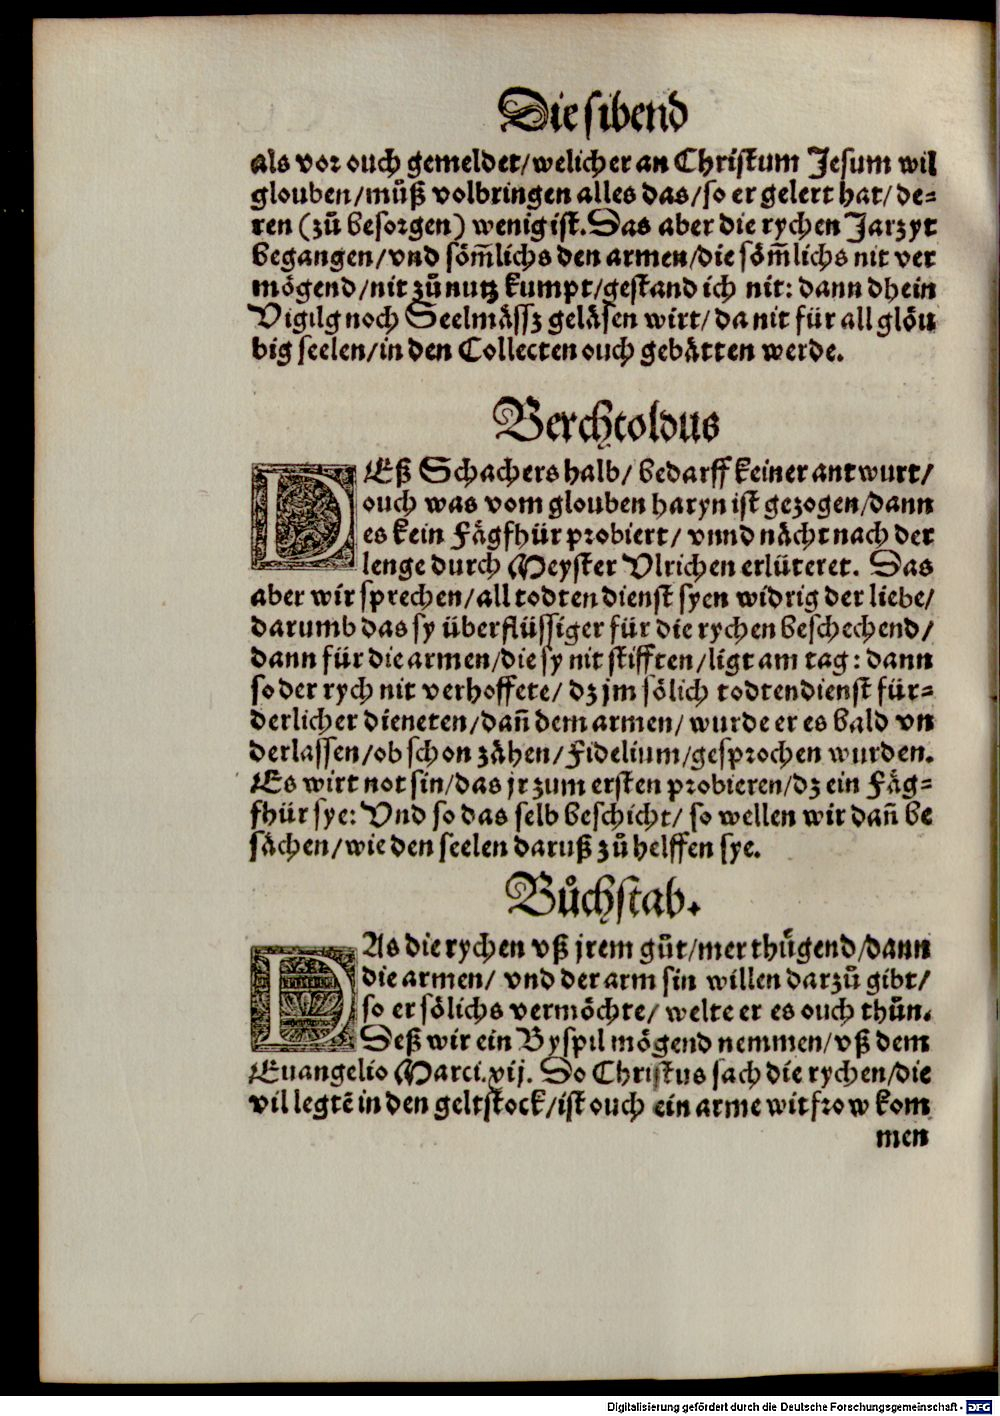 Die sibend
als vor ouch gemeldet/welicher an Christum Jesum wil
glouben/muͦß volbringen alles das/so er gelert hat/de⸗
ren (zuͦ besorgen) wenig ist. Das aber die rychen Jarzyt
begangen/vnd soͤm̃lichs den armen/die soͤm̃lichs nit ver
moͤgend/nit zuͦ nutz kumpt/gestand ich nit: dann dhein
Vigilg noch Seelmaͤssz gelaͤsen wirt/da nit fuͤr all gloͤu
big seelen/in den Collecten ouch gebaͤtten werde.
Berchtoldus
DEß Schachers halb/ bedarff keiner antwurt/
ouch was vom glouben haryn ist gezogen/dann
es kein Faͤgfhür probiert/ vnnd naͤcht nach der
lenge durch Meyster Vlrichen erlüteret. Das
aber wir sprechen/all todten dienst syen widrig der liebe/
darumb das sy überflüssiger für die rychen beschechend/
dann für die armen/die sy nit stifften/ligt am tag: dann
so der rych nit verhoffete/ dz jm soͤlich todtendienst für⸗
derlicher dieneten/dañ dem armen/ wurde er es bald vn
derlassen/ob schon zaͤhen/Fidelium/gesprochen wurden.
Es wirt not sin/das jr zum ersten probieren/dz ein Faͤg⸗
fhür sye: Vnd so das selb beschicht/ so wellen wir dañ be
saͤchen/wie den seelen daruß zuͦ helffen sye.
Buͦchstab.
DAs die rychen vß jrem guͦt/mer thuͤgend/dann
die armen/ vnd der arm sin willen darzuͦ gibt/
so er soͤlichs vermoͤchte/ welte er es ouch thuͦn.
Deß wir ein Byspil moͤgend nemmen/vß dem
Euangelio Marci.xij. Do Christus sach die rychen/die
vil legtẽ in den geltstock/ist ouch ein arme witfrow kom
men
Digitalisierung gefördert durch die Deutsche Forschungsgemeinschaft - DFG